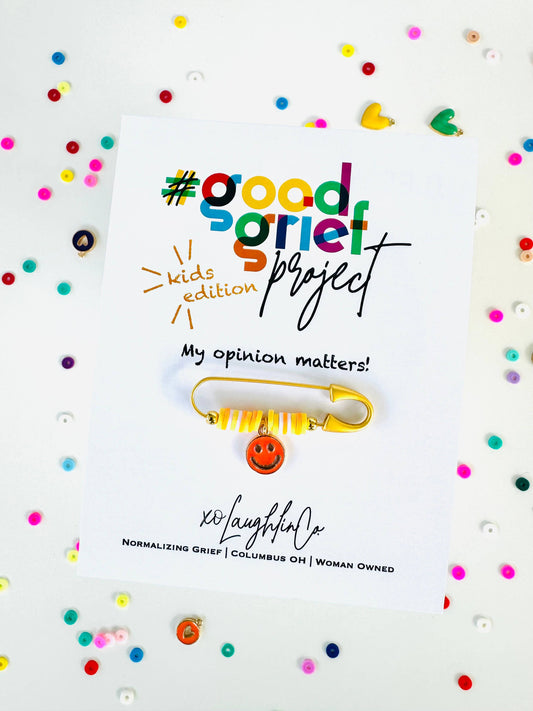 #good
grief
project
kids
edition
My opinion matters!
xo LaughlinCo.
Normalizing Grief | Columbus OH | Woman Owned